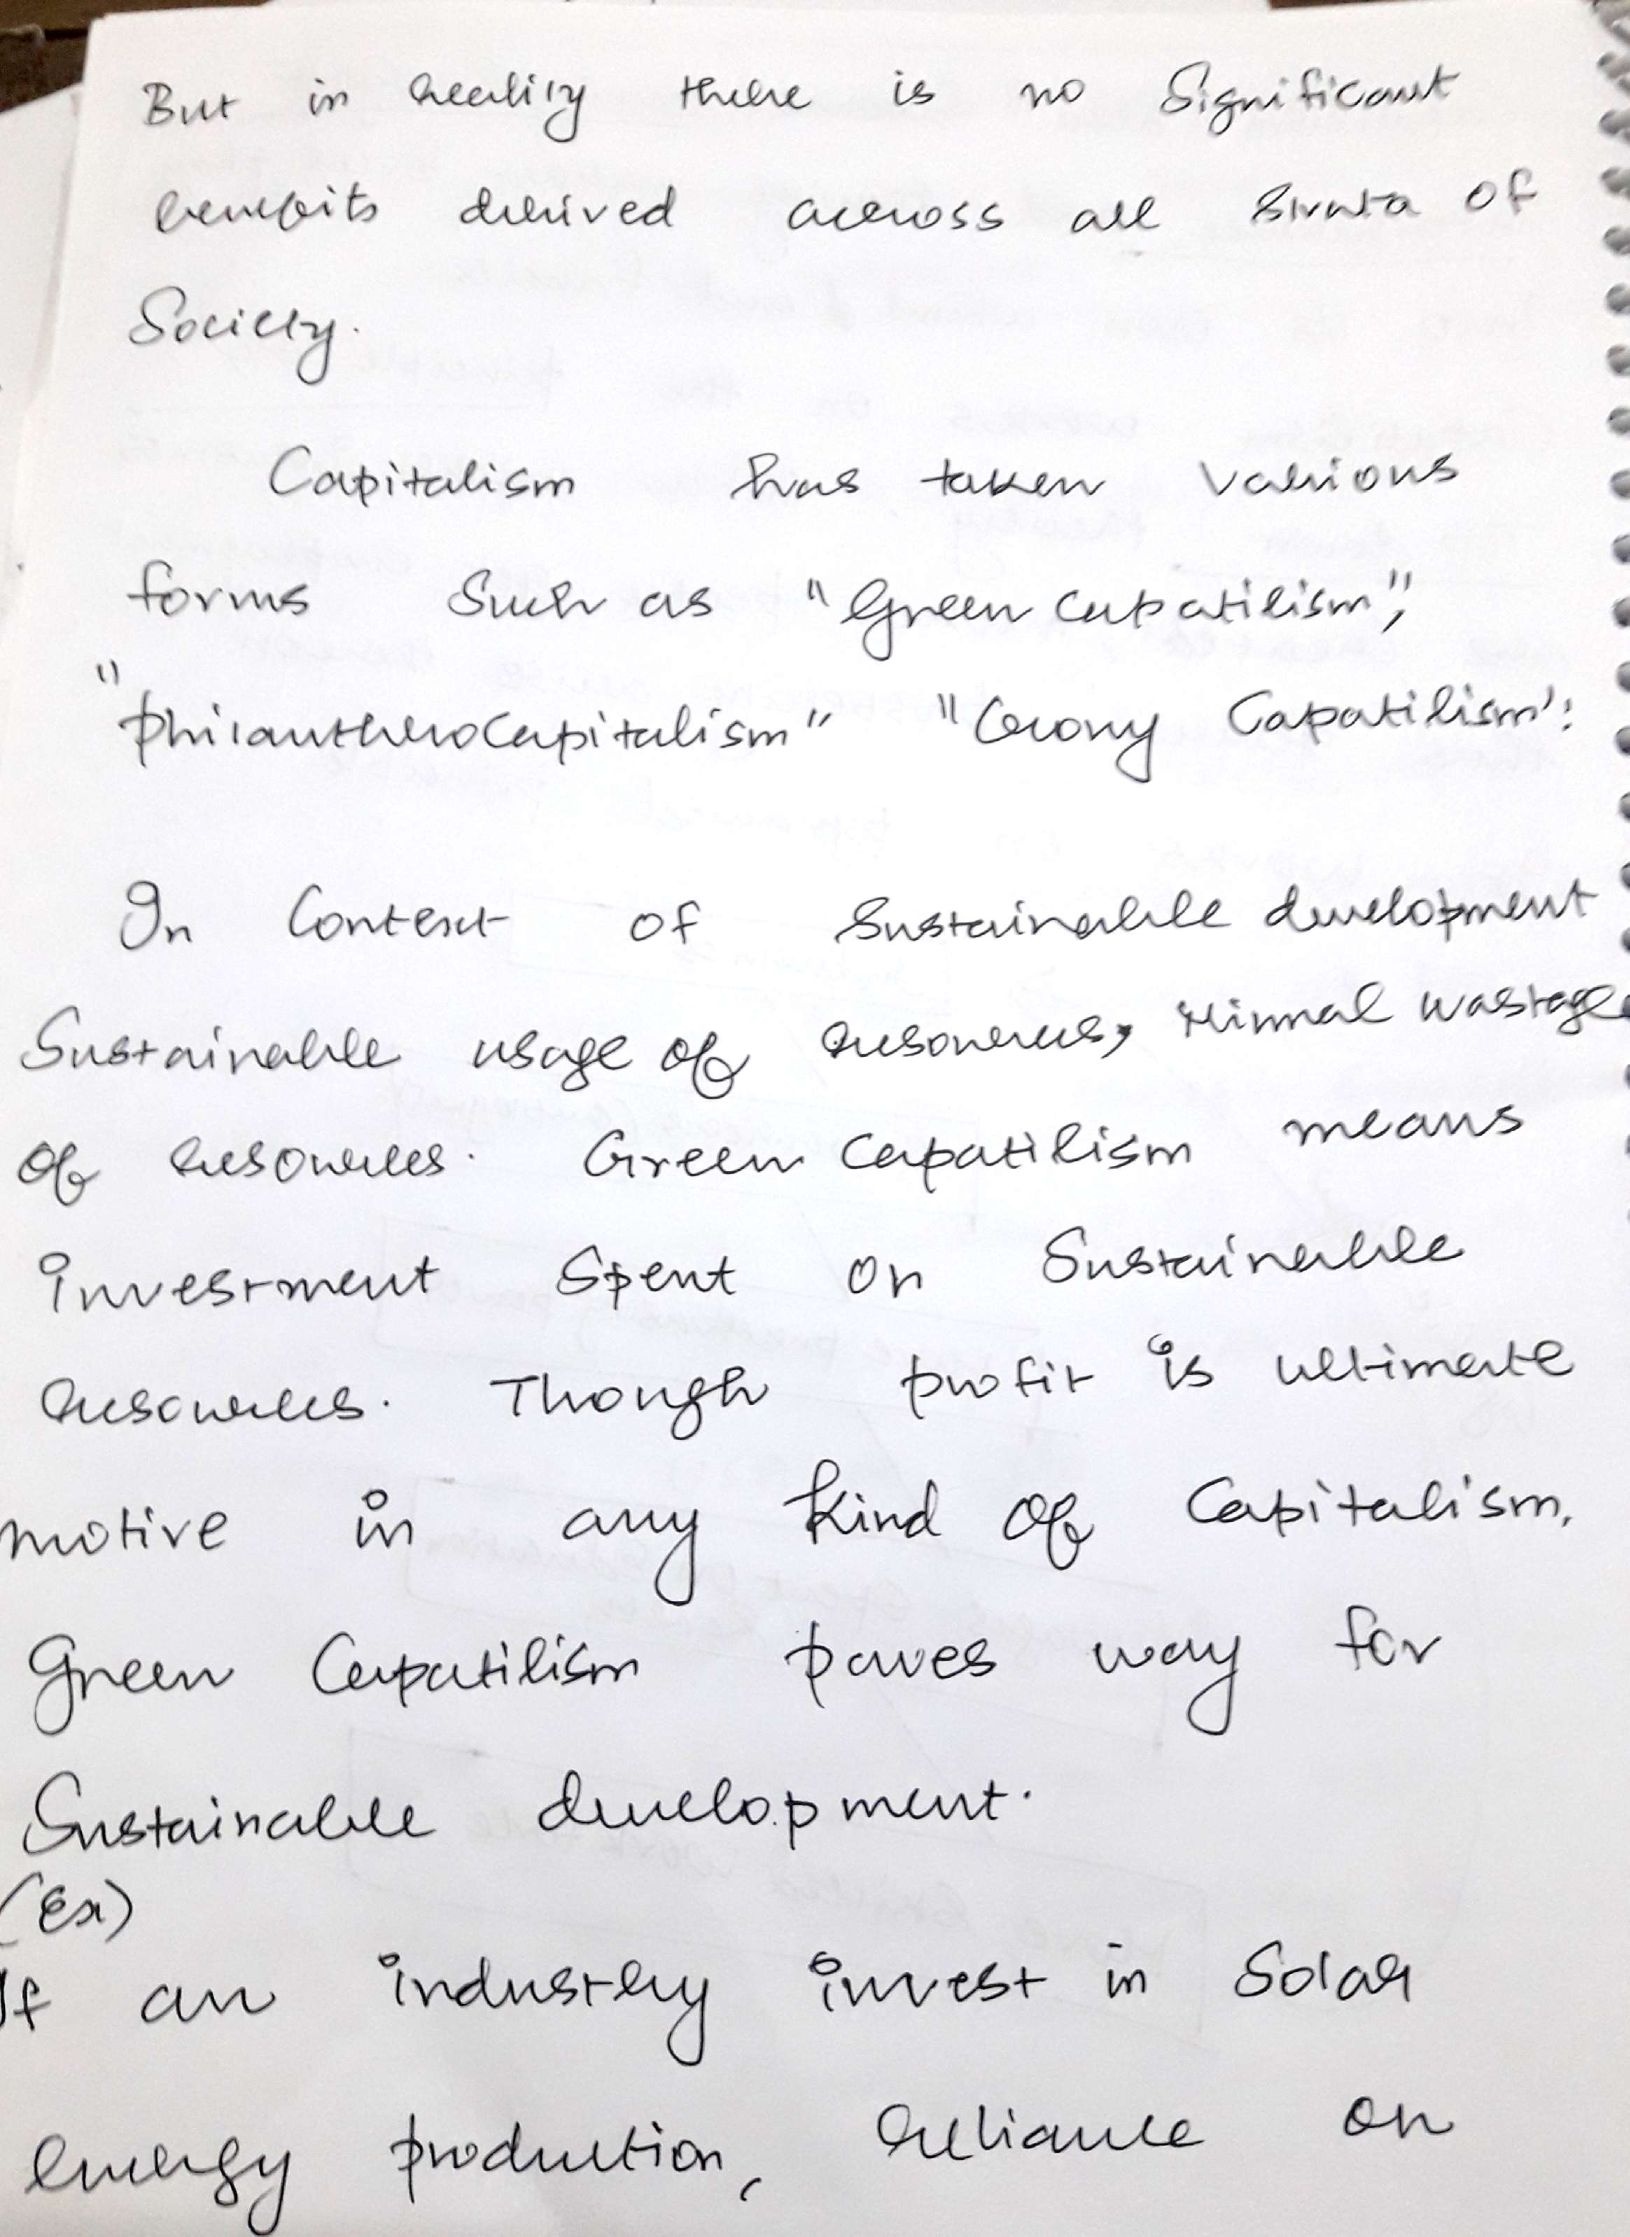 But in reality there is no Significant
benefits derived across all strata of
Society.
Capitalism has taken various
forms Such as "Green Capatilism",
"PhilanthroCapitalism" "Crony Capatilism".
In Context of Sustainable development
Sustainable usage of resources, Minmal wastage
of resources. Green Capatilism means
investment Spent on Sustainable
resources. Though profit is ultimate
motive in any kind of Capitalism.
Green Capatilism paves way for
Sustainable development.
(Ex)
If an industry invest in Solar
energy production, reliance on